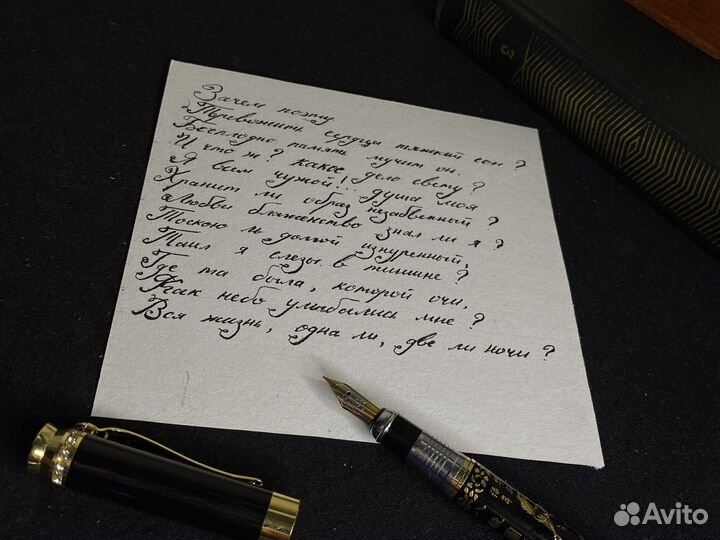 Зачем поэту
Тревожить сердца тяжкий сон?
Бесплодно память мучит он.
И что ж? какое дело свету?
Я всем чужой!.. душа моя
Хранит ли образ незабвенный?
Любви блаженство знал ли я?
Тоскою ль долгой изнуренный,
Таил я слезы в тишине?
Где та была, которой очи,
Как небо улыбались мне?
Вся жизнь, одна ли, две ли ночи?
3
Avito